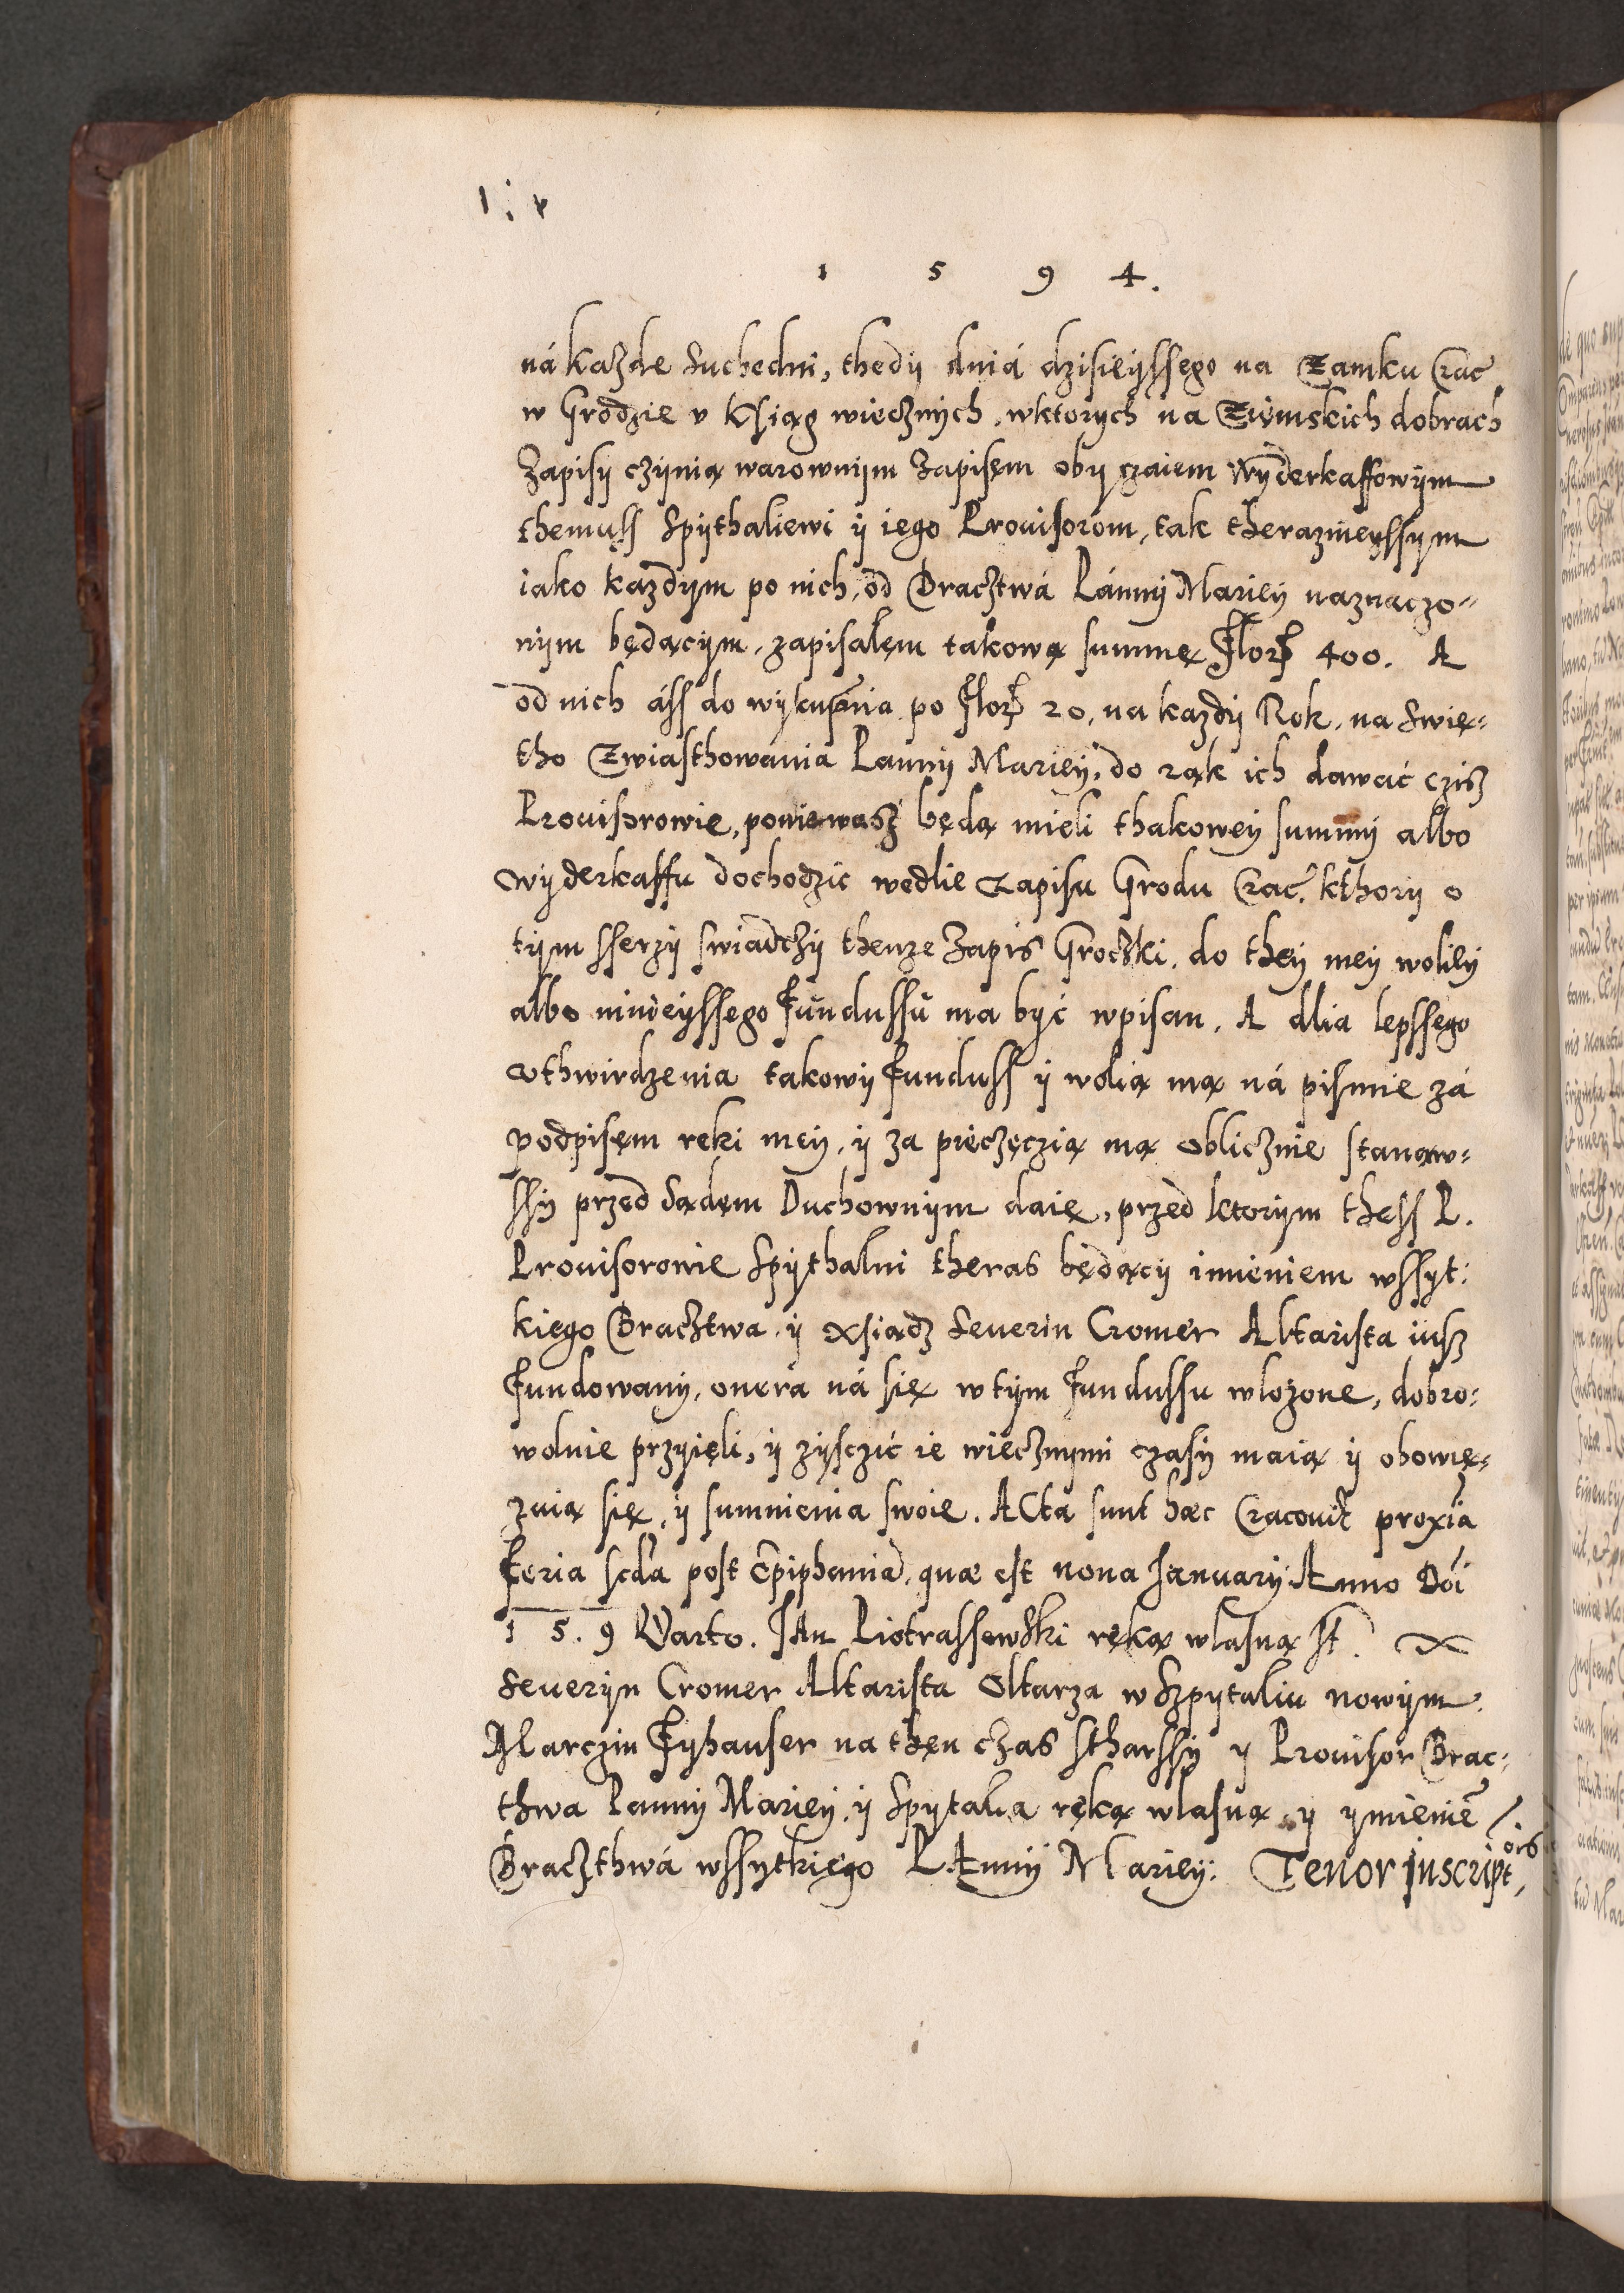 1 5 9 4.
ná kazde suchedni, thedy dniá dzisieyssego na Zamku Crac̃
w Grodzie v Ksiąg wiecznych, wktorych na Ziemskich dobrach
Zapisy czynią warownym Zapisem obyczaiem Wyderkaffowym
themuss Spythaliewi y iego Prouisorom, tak therazneyssym
iako kazdym po nich, od Bractwá Pánny Mariey naznaczo=
nym będącym, zapisałem takową summę Flor 400. A
od nich áss do wykupna po Flor 20, na kazdy Rok, na swię=
tho Zwiasthowánia Panny Mariey, do rąk ich dawać czisz
Prouisorowie, poniewasz będą mieli thakowey summy albo
wyderkaffu dochodzic wedlie Zapisu Grodu Crac̃. kthory o
tym sserzy swiadczy thenze Zapis Groczki, do they mey woliey
albo ninieyssego fundussu ma być wpisan, A dlia lepssego
vthwirdzenia takowy funduss y wolią mą ná pismie zá
podpisem ręki mey, y za pieczęczią mą oblicznie stanąw=
ssy przed sądem Duchownym daię, przed ktorym thess P.
Prouisorowie Spythalni theras będący imieniem wssyt:
kiego Bractwa, y Xsiądz Seuerin Cromer Altarista iusz
fundowany, onera ná się w tym fundussu wlozone, dobro:
wolnie przyięli, y zysczić ie wiecznymi czasy maią y obowię=
zuią się, y sumnienia swoie. Acta sunt hæc Cracouiæ proxĩa
feria scda post Epiphaniã, quæ est nona January Anno Dõi
1 5. 9 Qarto. Jan Piotrassewski ręką wlasną st. X
Seueryn Cromer Altarista Oltarza w Szpytaliu nowym.
Marczin Fyhauser na then czas stharssy y Prouisor Brac:
thwa Panny Mariey, y Spytalia ręką wlasną, y ymieniẽ
Braczthwá wssytkiego PAnny Mariey: Tenor inscriptois